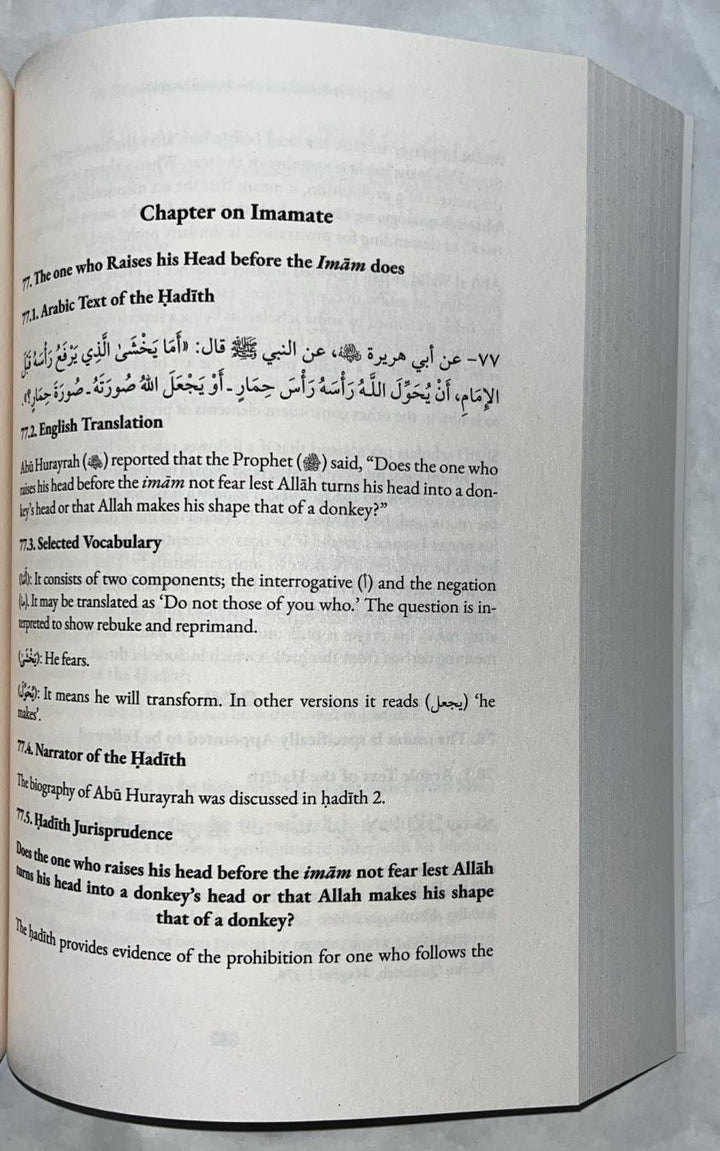 Chapter on Imamate
77. The one who Raises his Head before the Imām does
77.1. Arabic Text of the Ḥadīth
٧٧- عن أبي هريرة ﵁، عن النبي ﷺ قال: «أَمَا يَخْشَىٰ الَّذِي يَرْفَعُ رَأْسَهُ قَبْلَ
الإِمَامِ، أَنْ يُحَوِّلَ اللَّهُ رَأْسَهُ رَأْسَ حِمَارٍ ـ أَوْ يَجْعَلَ اللهُ صُورَتَهُ ـ صُورَةَ حِمَارٍ؟».
77.2. English Translation
Abū Hurayrah (﵁) reported that the Prophet (ﷺ) said, “Does the one who
raises his head before the imām not fear lest Allāh turns his head into a don-
key’s head or that Allah makes his shape that of a donkey?”
77.3. Selected Vocabulary
(أَمَا): It consists of two components; the interrogative (أ) and the negation
(ما). It may be translated as ‘Do not those of you who.’ The question is in-
terpreted to show rebuke and reprimand.
(يَخْشَىٰ): He fears.
(يُحَوِّلَ): It means he will transform. In other versions it reads (يجعل) ‘he
makes’.
77.4. Narrator of the Ḥadīth
The biography of Abū Hurayrah was discussed in ḥadīth 2.
77.5. Ḥadīth Jurisprudence
Does the one who raises his head before the imām not fear lest Allāh
turns his head into a donkey’s head or that Allah makes his shape
that of a donkey?
The ḥadīth provides evidence of the prohibition for one who follows the